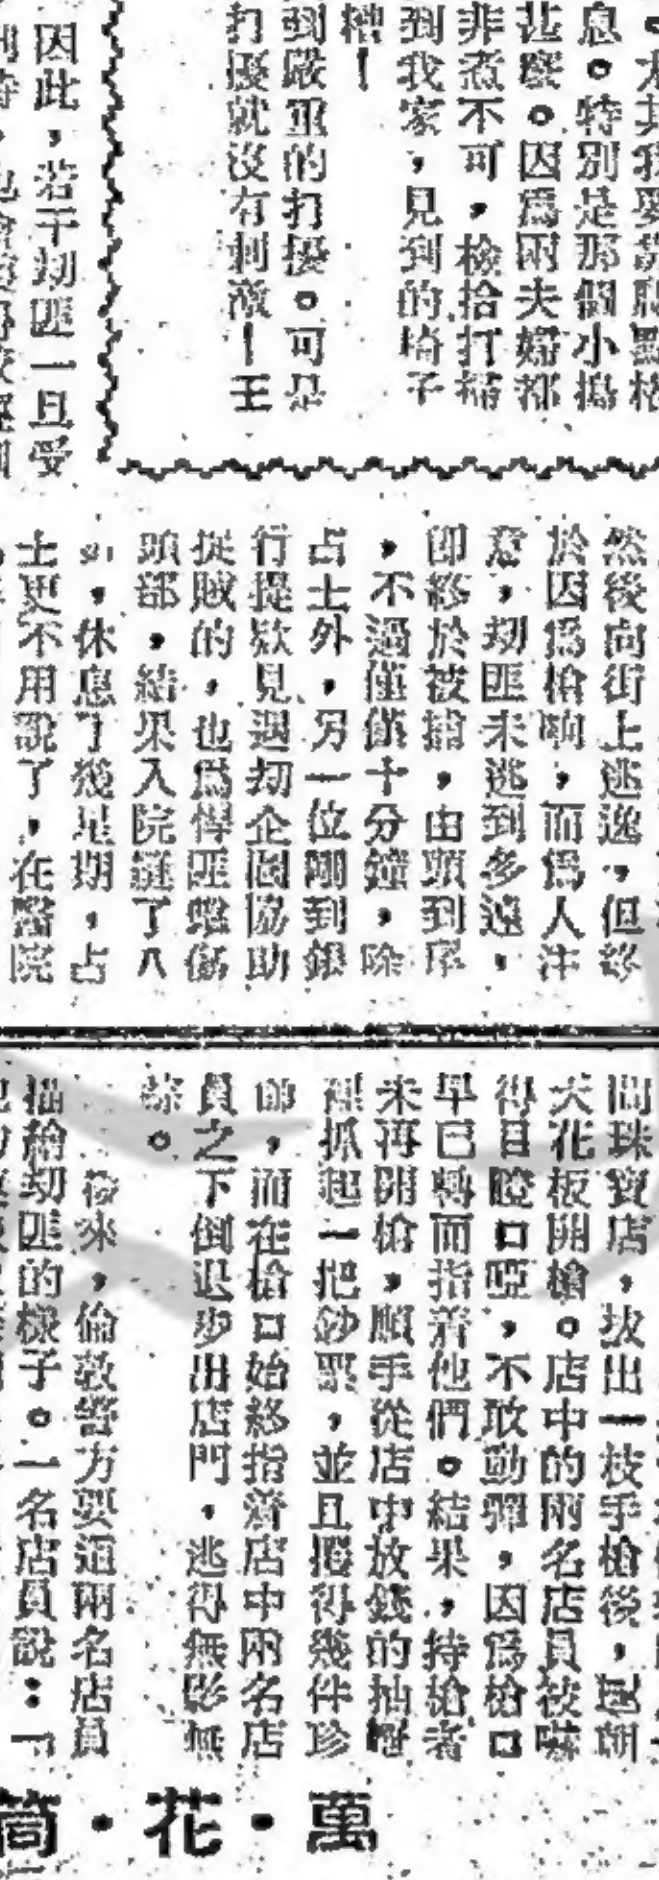 息。特別是那個小搗
甚麼。因爲兩夫婦都
非煮不可，檢拾打掃
到我家，見到的椅子
糟！
到嚴重的打擾。可是
打擾就沒有刺激！王
因此，若干刼匪一旦受
然後向街上逃逸，但終
於因爲槍响，而爲人注
意，刼匪未逃到多遠，
即終於被捕，由頭到尾
，不過僅僅十分鐘，除
占士外，另一位剛到銀
行提欵見遇刼企圖協助
捉賊的，也爲悍匪擊傷
頭部，結果入院縫了八
，休息了幾星期，占
士更不用說了，在醫院
間珠寶店，拔出一枝手槍後，朝
天花板開槍。店中的兩名店員被嚇
得目瞪口啞，不敢動彈，因爲槍口
早已轉而指着他們。結果，持槍者
未再開槍，順手從店中放錢的抽屜
裡抓起一把鈔票，並且攫得幾件珍
飾，而在槍口始終指着店中兩名店
員之下倒退步出店門，逃得無影無
踪。
後來，倫敦警方要這兩名店員
描繪刼匪的樣子。一名店員說：「
萬・花・筒